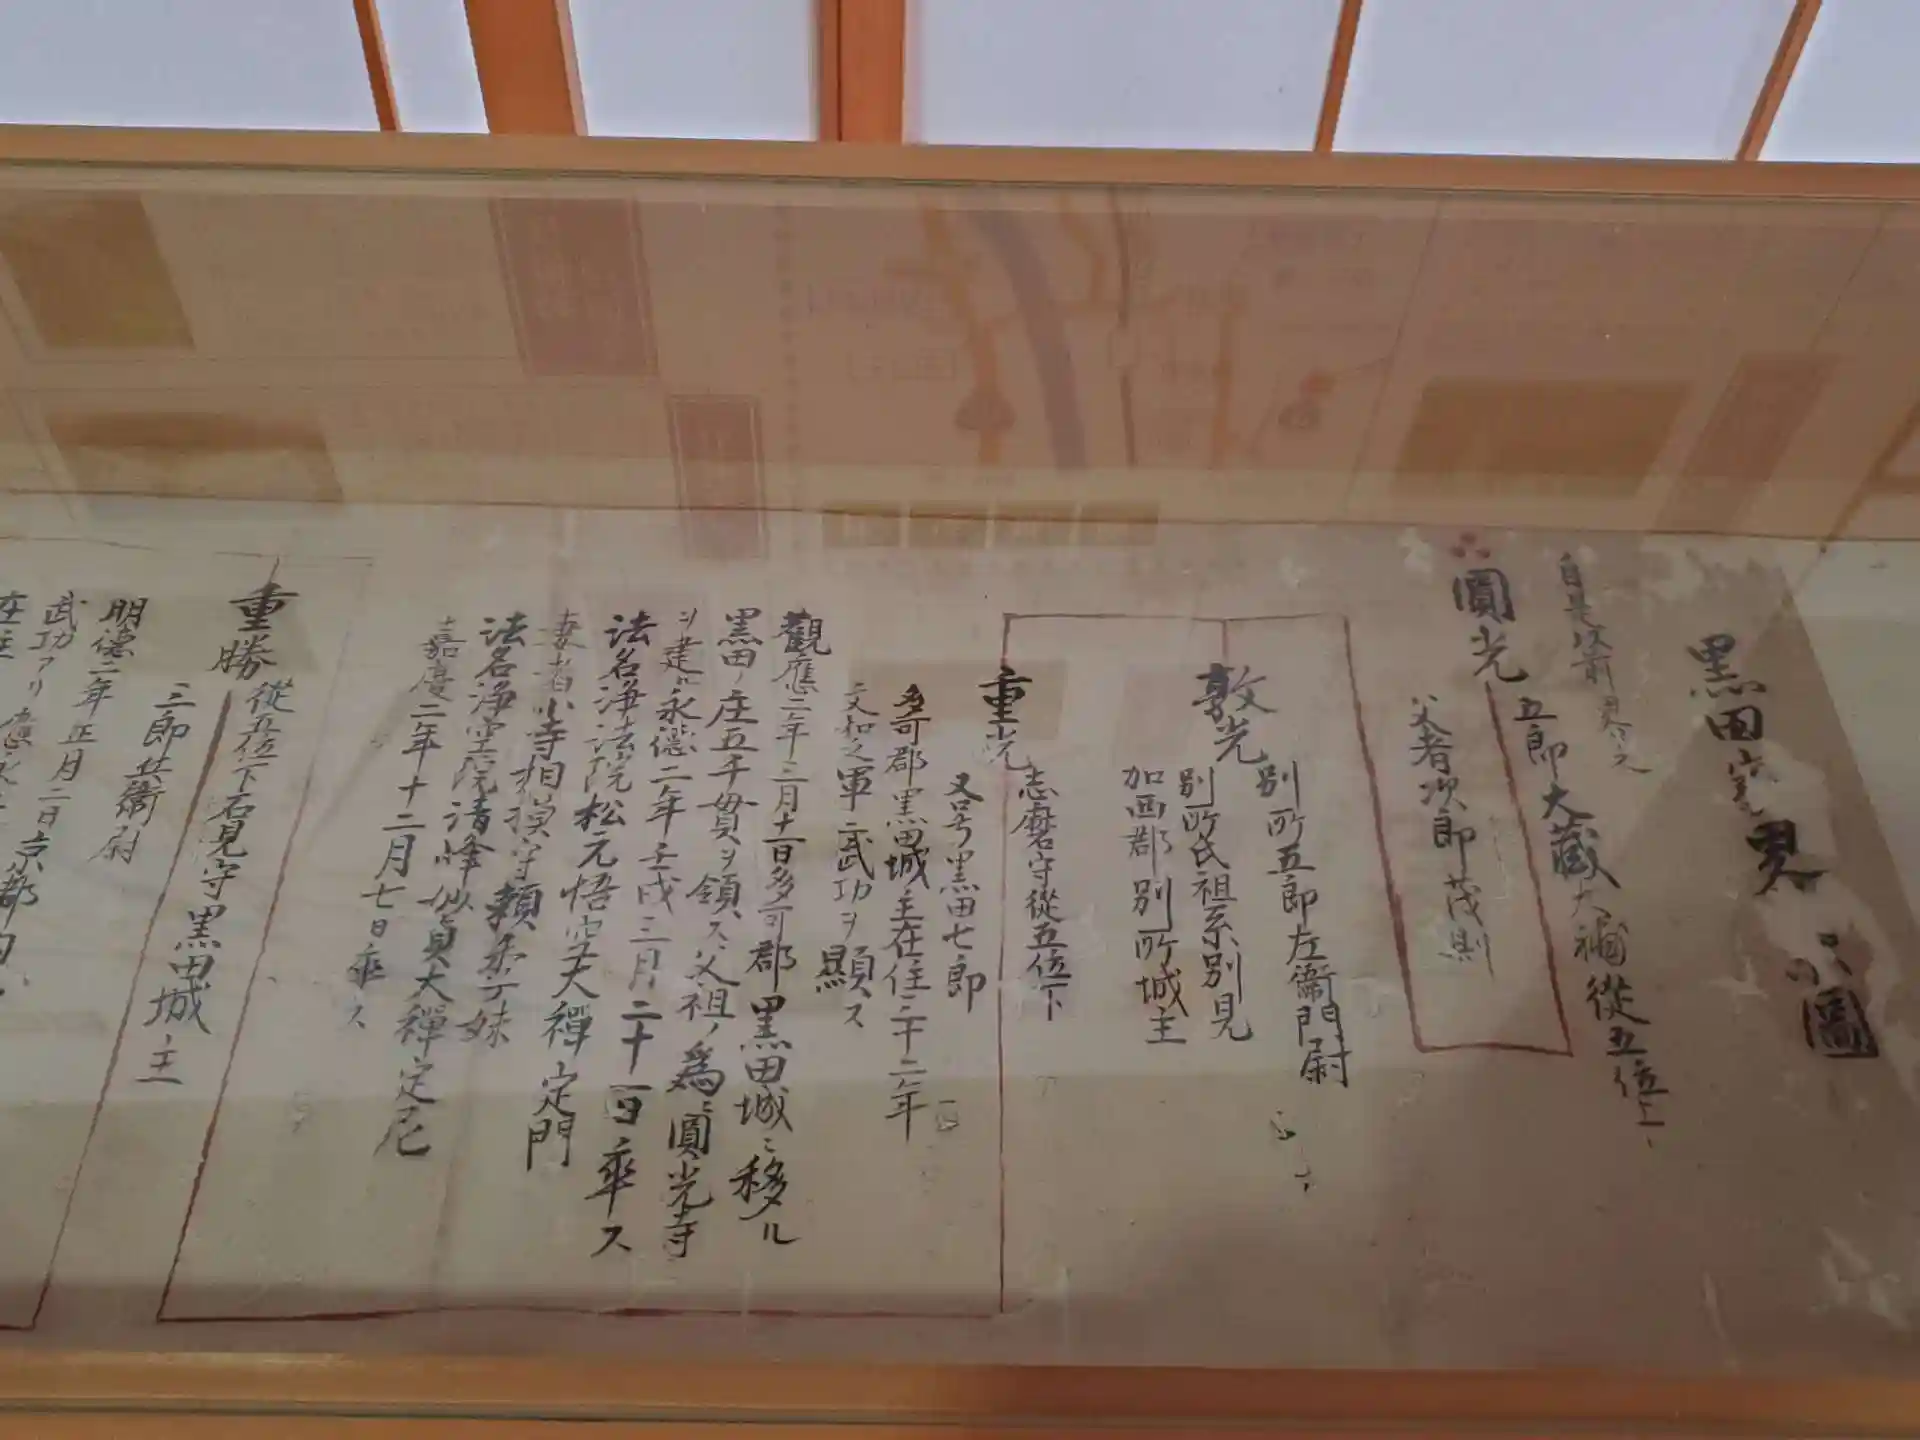 黒田家畧ノ圖
自是以前畧之
圓光
五郎大蔵大補從五位上
父者次郎茂則
敦光
別所五郎左衞門尉
別所氏祖系別見
加西郡別所城主
重光
志磨守從五位下
又号黒田七郎
多可郡黒田城主在住三十二年
文和之軍ニ武功ヲ顯ス
觀應二年三月十一日多可郡黒田城ニ移ル
黒田ノ庄五千貫ヲ領ス父祖ノ爲ニ圓光寺
ヲ建ル永德二年壬戌三月二十一日卒ス
法名浄法院松元悟空大禪定門
妻者小寺相模守頼季ノ妹
法名浄空院清峰妙眞大禪定尼
嘉慶二年十二月七日卒ス
重勝
從五位下石見守黒田城主
三郎兵衞尉
明德二年正月二日京都
武功アリ應永
在主